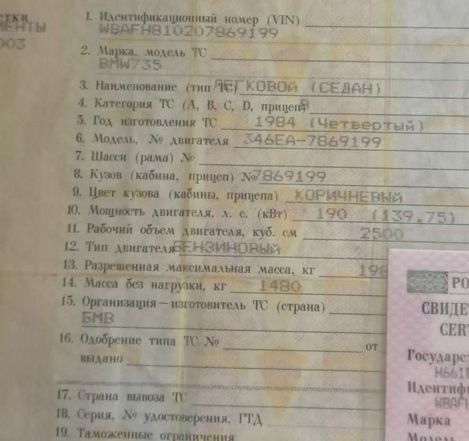 1. Идентификационный номер (VIN)
WBAFH810207869199
2. Марка, модель ТС
BMW735
3. Наименование (тип ТС) ЛЕГКОВОЙ (СЕДАН)
4. Категория ТС (А, В, С, D, прицеп) B
5. Год изготовления ТС 1984 (Четвертый)
6. Модель, № двигателя 346EA-7869199
7. Шасси (рама) №
8. Кузов (кабина, прицеп) № 7869199
9. Цвет кузова (кабины, прицепа) КОРИЧНЕВЫЙ
10. Мощность двигателя, л. с. (кВт) 190 (139.75)
11. Рабочий объем двигателя, куб. см 2500
12. Тип двигателя БЕНЗИНОВЫЙ
13. Разрешенная максимальная масса, кг 198
14. Масса без нагрузки, кг 1480
15. Организация – изготовитель ТС (страна)
БМВ
16. Одобрение типа ТС № от
выдано
17. Страна вывоза ТС
18. Серия, № удостоверения, ГТД
19. Таможенные ограничения
003
РО
СВИДЕ
CERT
Государс
Н661
Идентифи
WBAFH
Марка
Модель